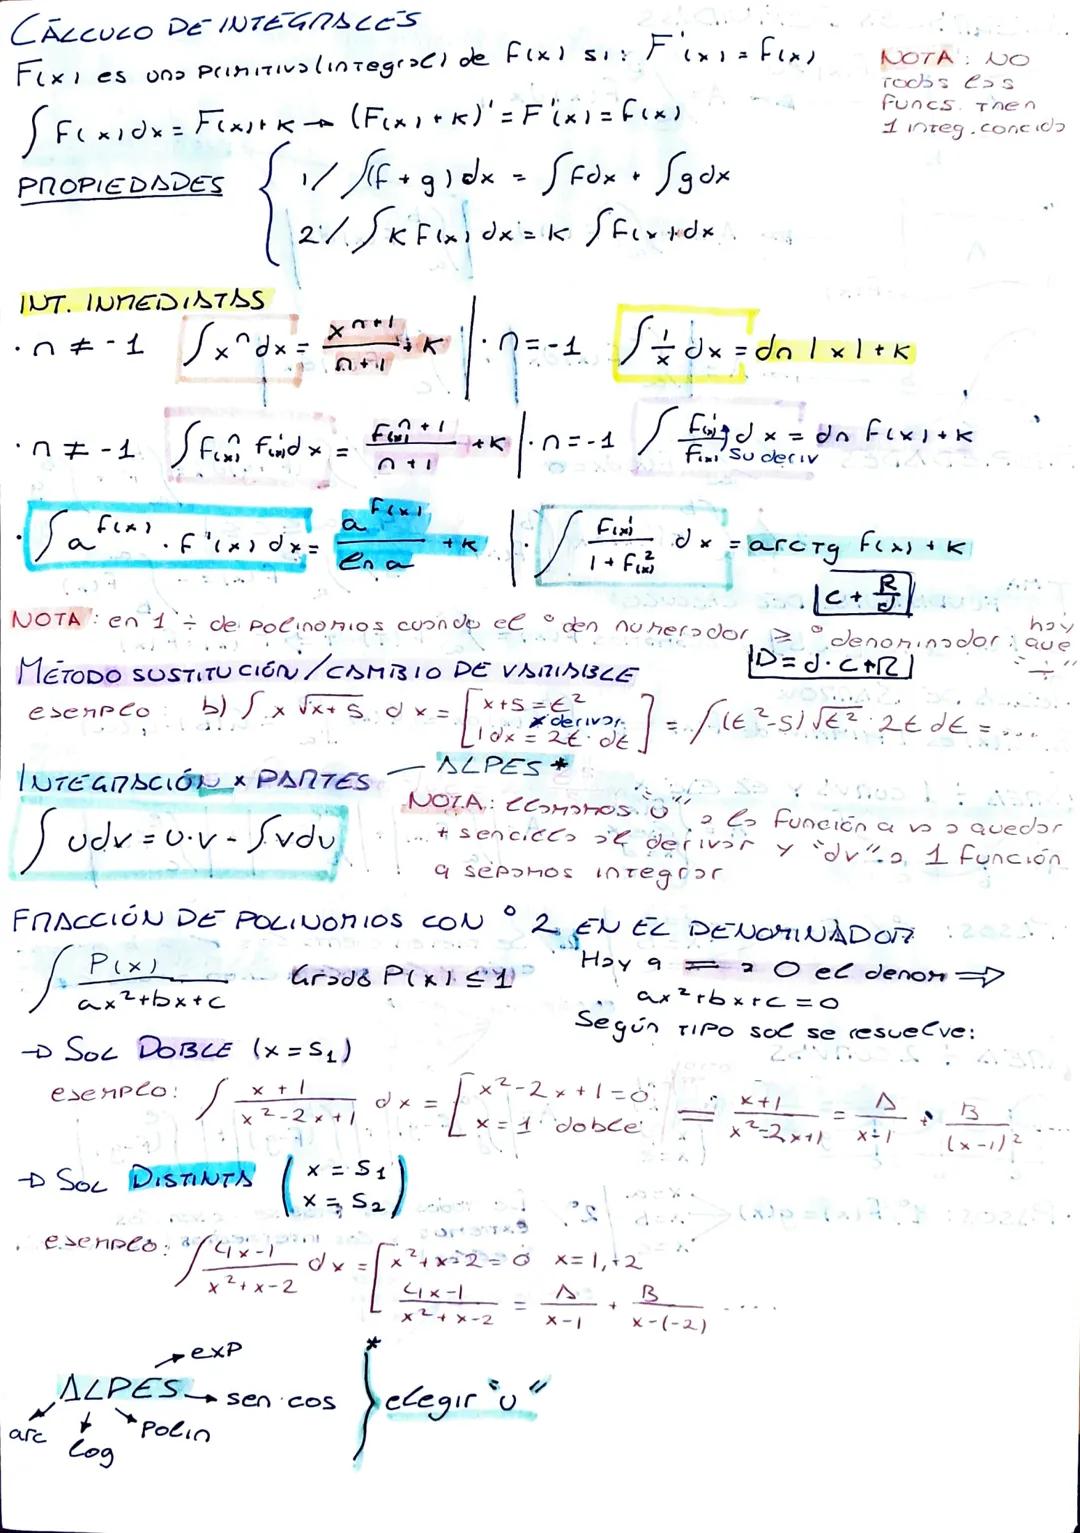 CÁLCULO DE INTEGRALES
F(x) es una primitiva (integral) de f(x) si: F'(x) = f(x)
NOTA: NO
todas las
funcs. tnen
1 integ. conocida
∫ f(x) dx = F(x) + K → (F(x) + K)' = F'(x) = f(x)
PROPIEDADES
1/ ∫(f + g) dx = ∫ f dx + ∫ g dx
2/ ∫ K f(x) dx = K ∫ f(x) dx
INT. INMEDIATAS
· n ≠ -1 ∫ x^n dx = x^(n+1)/(n+1) + K | · n = -1 ∫ 1/x dx = ln |x| + K
· n ≠ -1 ∫ f(x)^n f(x)' dx = f(x)^(n+1)/(n+1) + K | · n = -1 ∫ f(x)'/f(x) dx = ln f(x) + K
su deriv
· ∫ a^f(x) · f'(x) dx = a^f(x)/ln a + K | · ∫ f(x)'/(1 + f(x)^2) dx = arctg f(x) + K
C + R/d
NOTA: en 1 ÷ de polinomios cuando el ° den numerador ≥ ° denominador: hay que "÷"
D = d · C + R
MÉTODO SUSTITUCIÓN/CAMBIO DE VARIABLE
ejemplo: b) ∫ x √x+5 dx = [x+5 = t^2 * derivar 1 dx = 2t · dt] = ∫ (t^2-5) √t^2 · 2t dt = ....
INTEGRACIÓN x PARTES — ALPES *
∫ u dv = u · v - ∫ v du
NOTA: llamamos "u" a la función q va a quedar
+ sencilla al derivar y "dv" a 1 función
q sepamos integrar
FRACCIÓN DE POLINOMIOS CON ° 2 EN EL DENOMINADOR
∫ P(x)/(ax^2+bx+c) Grado P(x) ≤ 1
Hay q = a 0 el denom ⇒
ax^2+bx+c = 0
Según tipo sol se resuelve:
→ SOL DOBLE (x = S1)
ejemplo: ∫ (x+1)/(x^2-2x+1) dx = [x^2-2x+1=0 x = 1 doble = (x+1)/(x^2-2x+1) = A/(x-1) + B/(x-1)^2 ....
→ SOL DISTINTA (x = S1 x = S2)
ejemplo: ∫ (4x-1)/(x^2+x-2) dx = [x^2+x-2 = 0 x=1,-2
(4x-1)/(x^2+x-2) = A/(x-1) + B/(x-(-2)) ....
exp
*
ALPES → sen cos } elegir "u"
arc log polin